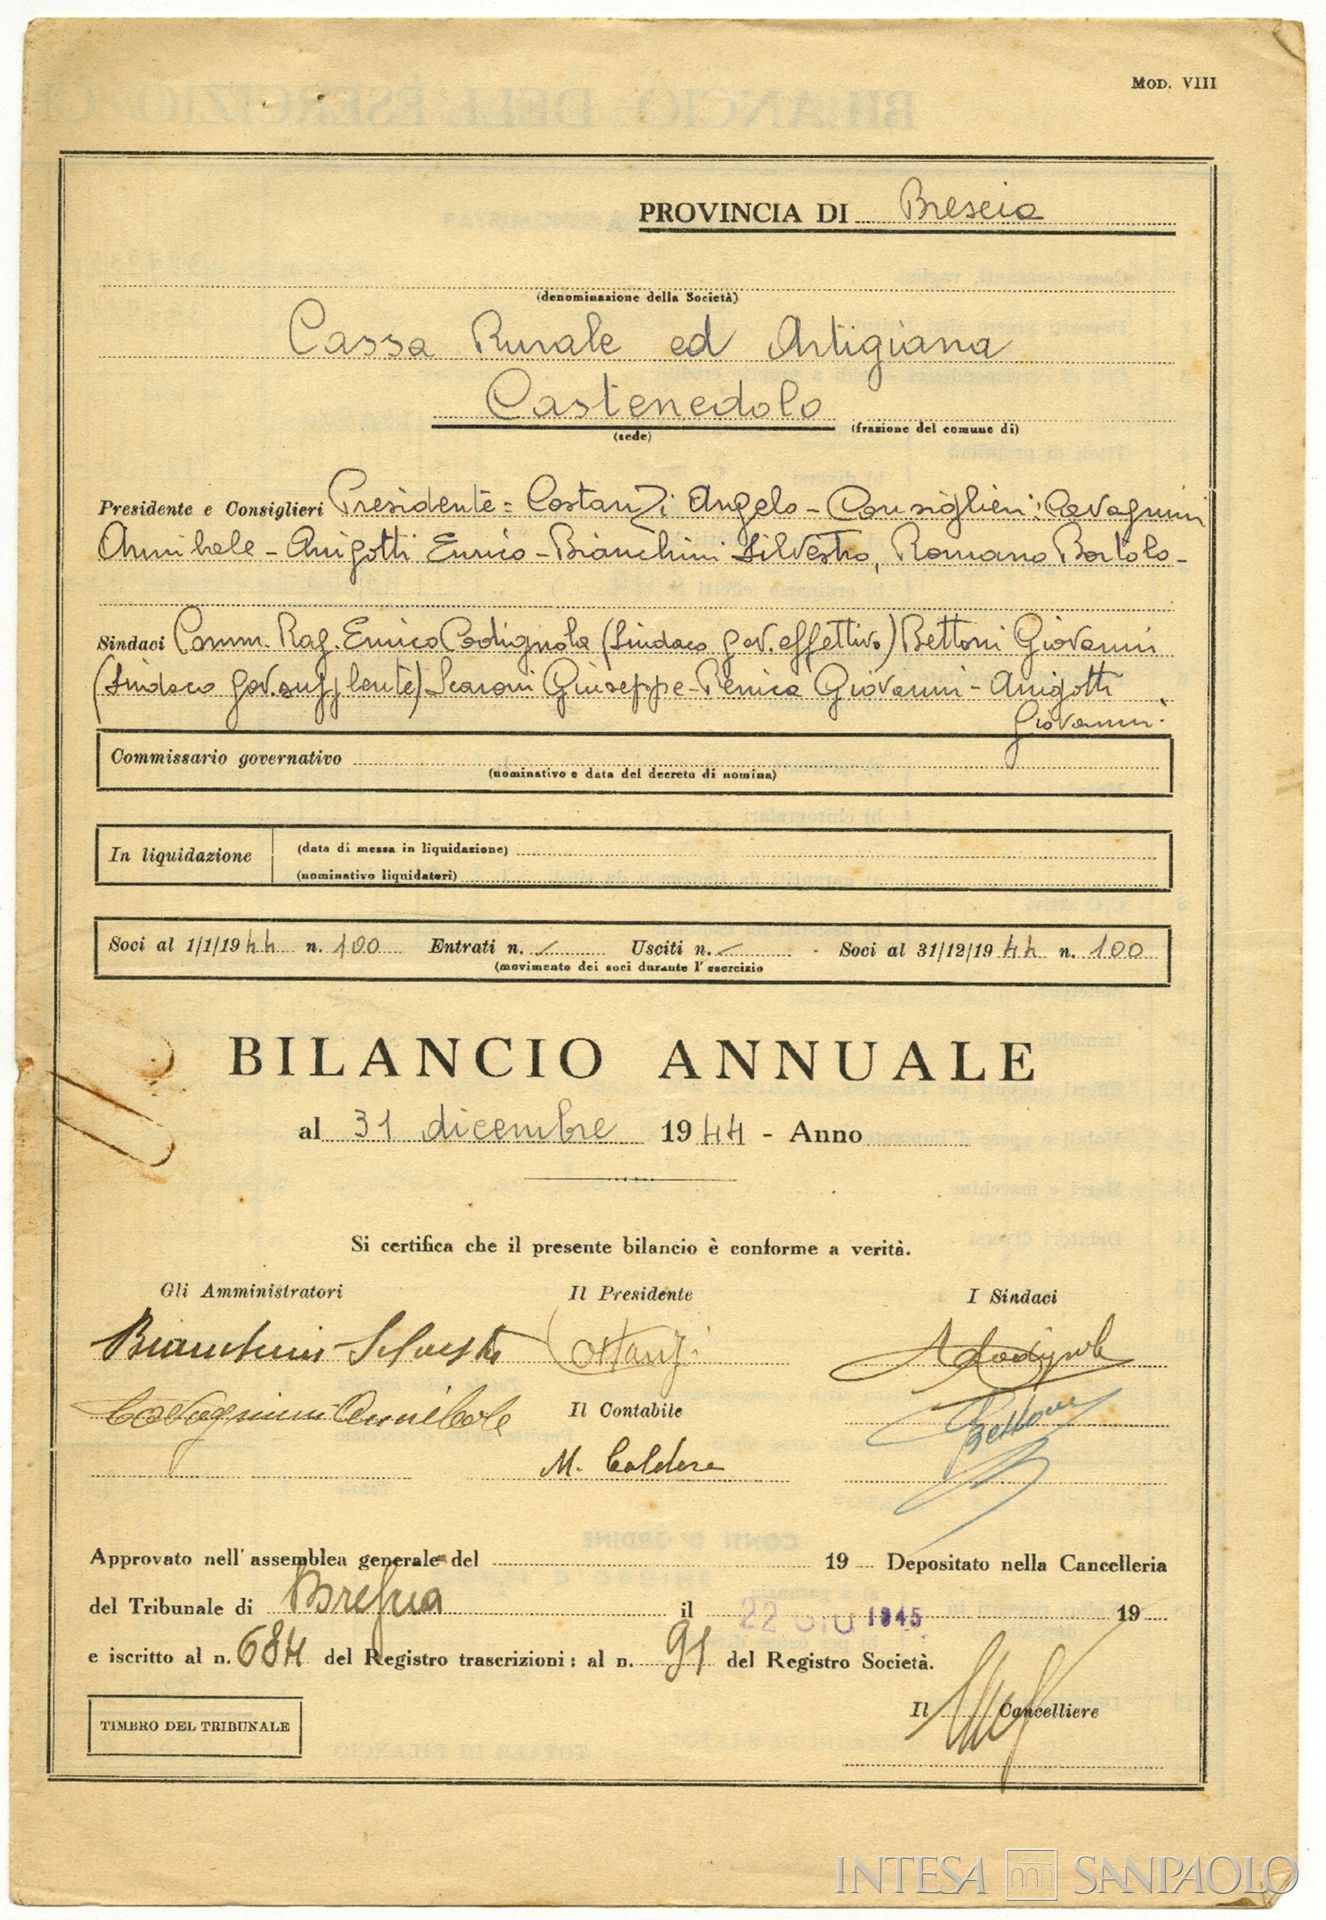 MOD. VIII
PROVINCIA DI Brescia
(denominazione della Società)
Cassa Rurale ed Artigiana
Castenedolo
(sede)
(frazione del comune di)
Presidente e Consiglieri Presidente = Costanzi Angelo - Consiglieri: Cavagnini
Annibale - Arrigotti Enrico - Bianchini Silvestro, Romano Bortolo -
Sindaci Comm. Rag. Enrico Codignola (Sindaco gov. effettivo) Bettoni Giovanni
(Sindaco gov. supplente) Scaroni Giuseppe - Penica Giovanni - Arrigotti
Giovanni.
Commissario governativo
(nominativo e data del decreto di nomina)
In liquidazione
(data di messa in liquidazione)
(nominativo liquidatori)
Soci al 1/1/1944 n. 100 Entrati n. / Usciti n. / - Soci al 31/12/1944 n. 100
(movimento dei soci durante l' esercizio
BILANCIO ANNUALE
al 31 dicembre 1944 - Anno
Si certifica che il presente bilancio è conforme a verità.
Gli Amministratori Il Presidente I Sindaci
Bianchini Silvestro Costanzi Codignola
Cavagnini Annibale Il Contabile Bettoni
M. Caldera
Approvato nell' assemblea generale del 19 Depositato nella Cancelleria
del Tribunale di Brescia il 22 GIU 1945 19
e iscritto al n. 684 del Registro trascrizioni: al n. 91 del Registro Società.
Il Cancelliere
TIMBRO DEL TRIBUNALE
INTESA SANPAOLO